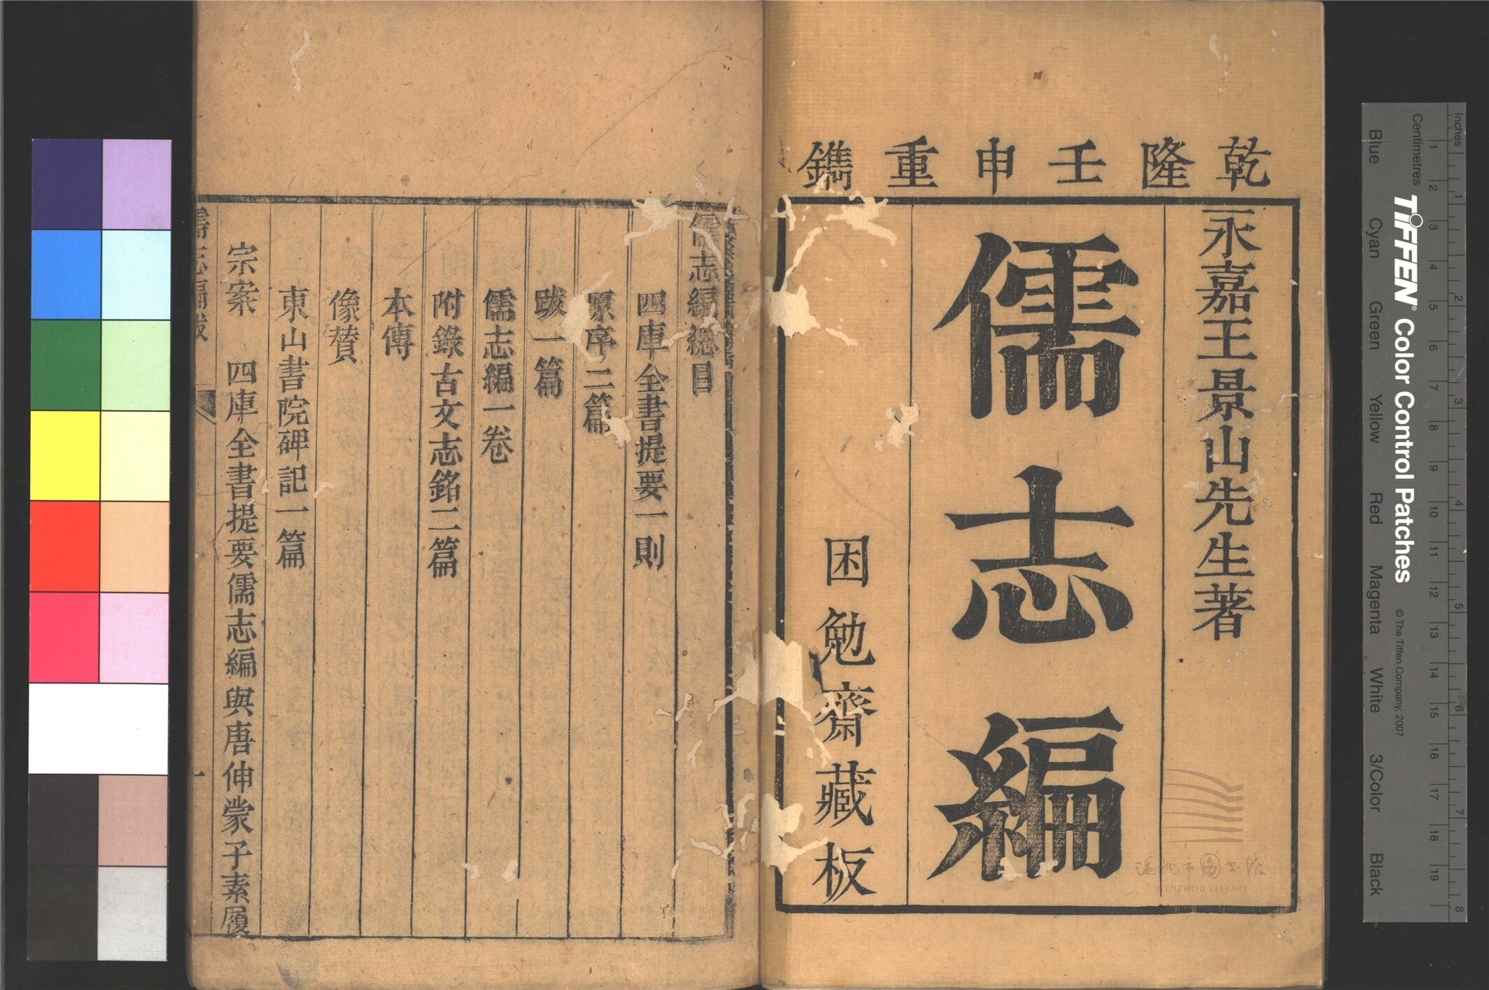 乾隆壬申重鐫
永嘉王景山先生著
儒志編
困勉齋藏板
儒志編總目
四庫全書提要一則
原序二篇
跋一篇
儒志編一卷
附錄古文志銘二篇
本傳
像贊
東山書院碑記一篇
宗案 四庫全書提要儒志編與唐伸蒙子素履
儒志編
一
温州市图书馆
WENZHOU LIBRARY
Inches
Centimetres
1 2 3 4 5 6 7 8
1 2 3 4 5 6 7 8 9 10 11 12 13 14 15 16 17 18 19
TIFFEN® Color Control Patches
© The Tiffen Company, 2007
Blue Cyan Green Yellow Red Magenta White 3/Color Black